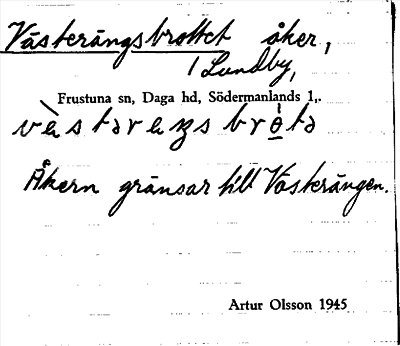 Västerängsbrottet åker,
/ Lundby,
Frustuna sn, Daga hd, Södermanlands l,.
Åkern gränsar till Västerängen.
Artur Olsson 1945